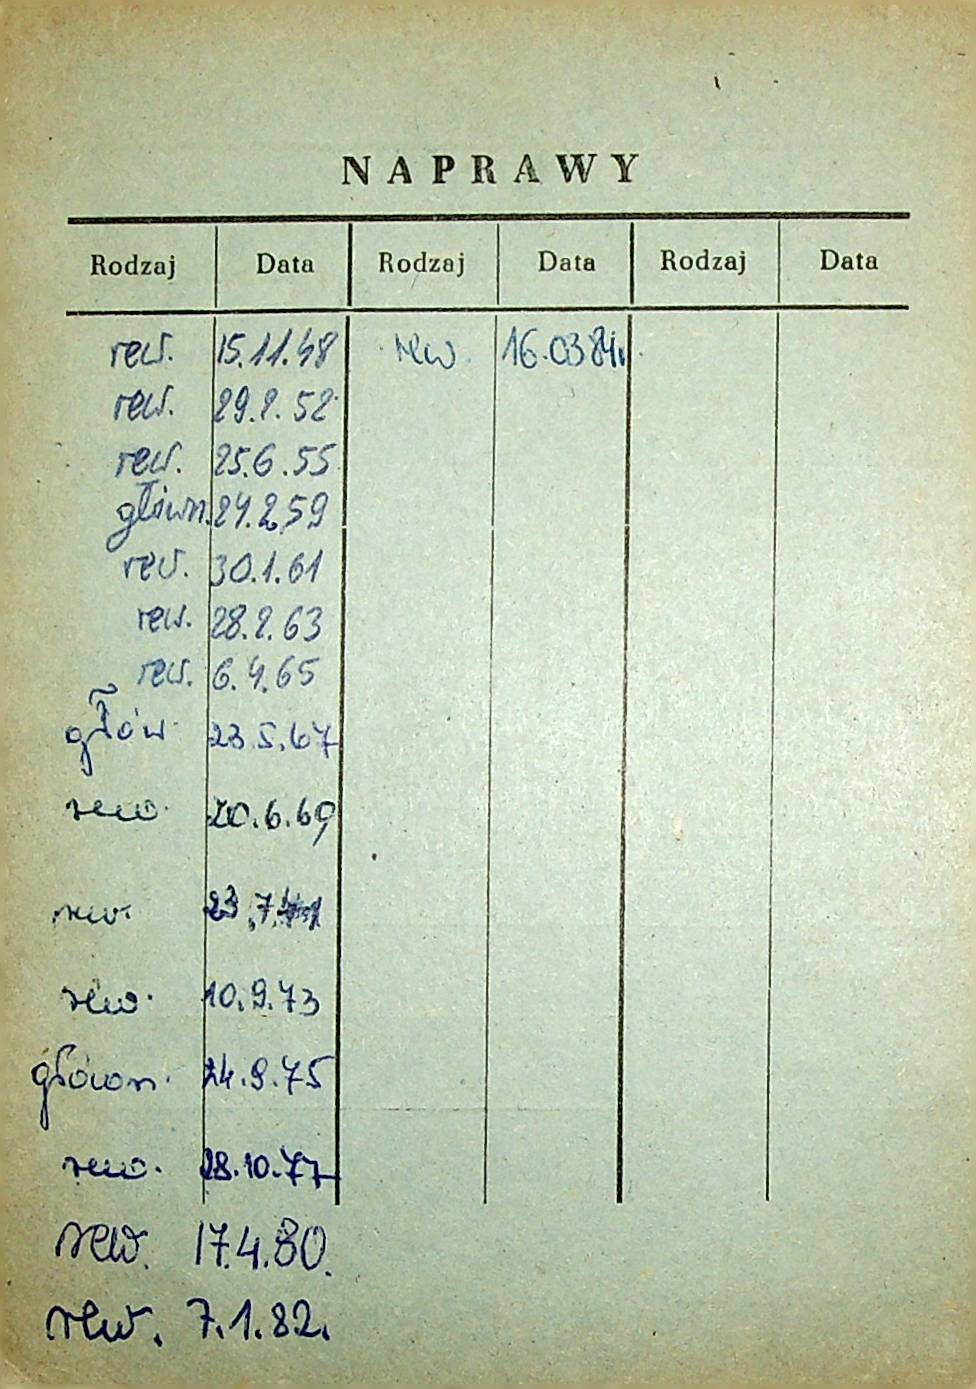 NAPRAWY
Rodzaj Data Rodzaj Data Rodzaj Data
rew. 15.11.48 rew. 16.03 84r.
rew. 29.2.52
rew. 25.6.55
główn. 24.2.59
rew. 30.1.61
rew. 28.2.63
rew. 6.4.65
głów. 23.5.67
rew. 20.6.69
rew. 23.7.71
rew. 10.9.73
główn. 24.9.75
rew. 28.10.77
rew. 17.4.80.
rew. 7.1.82.